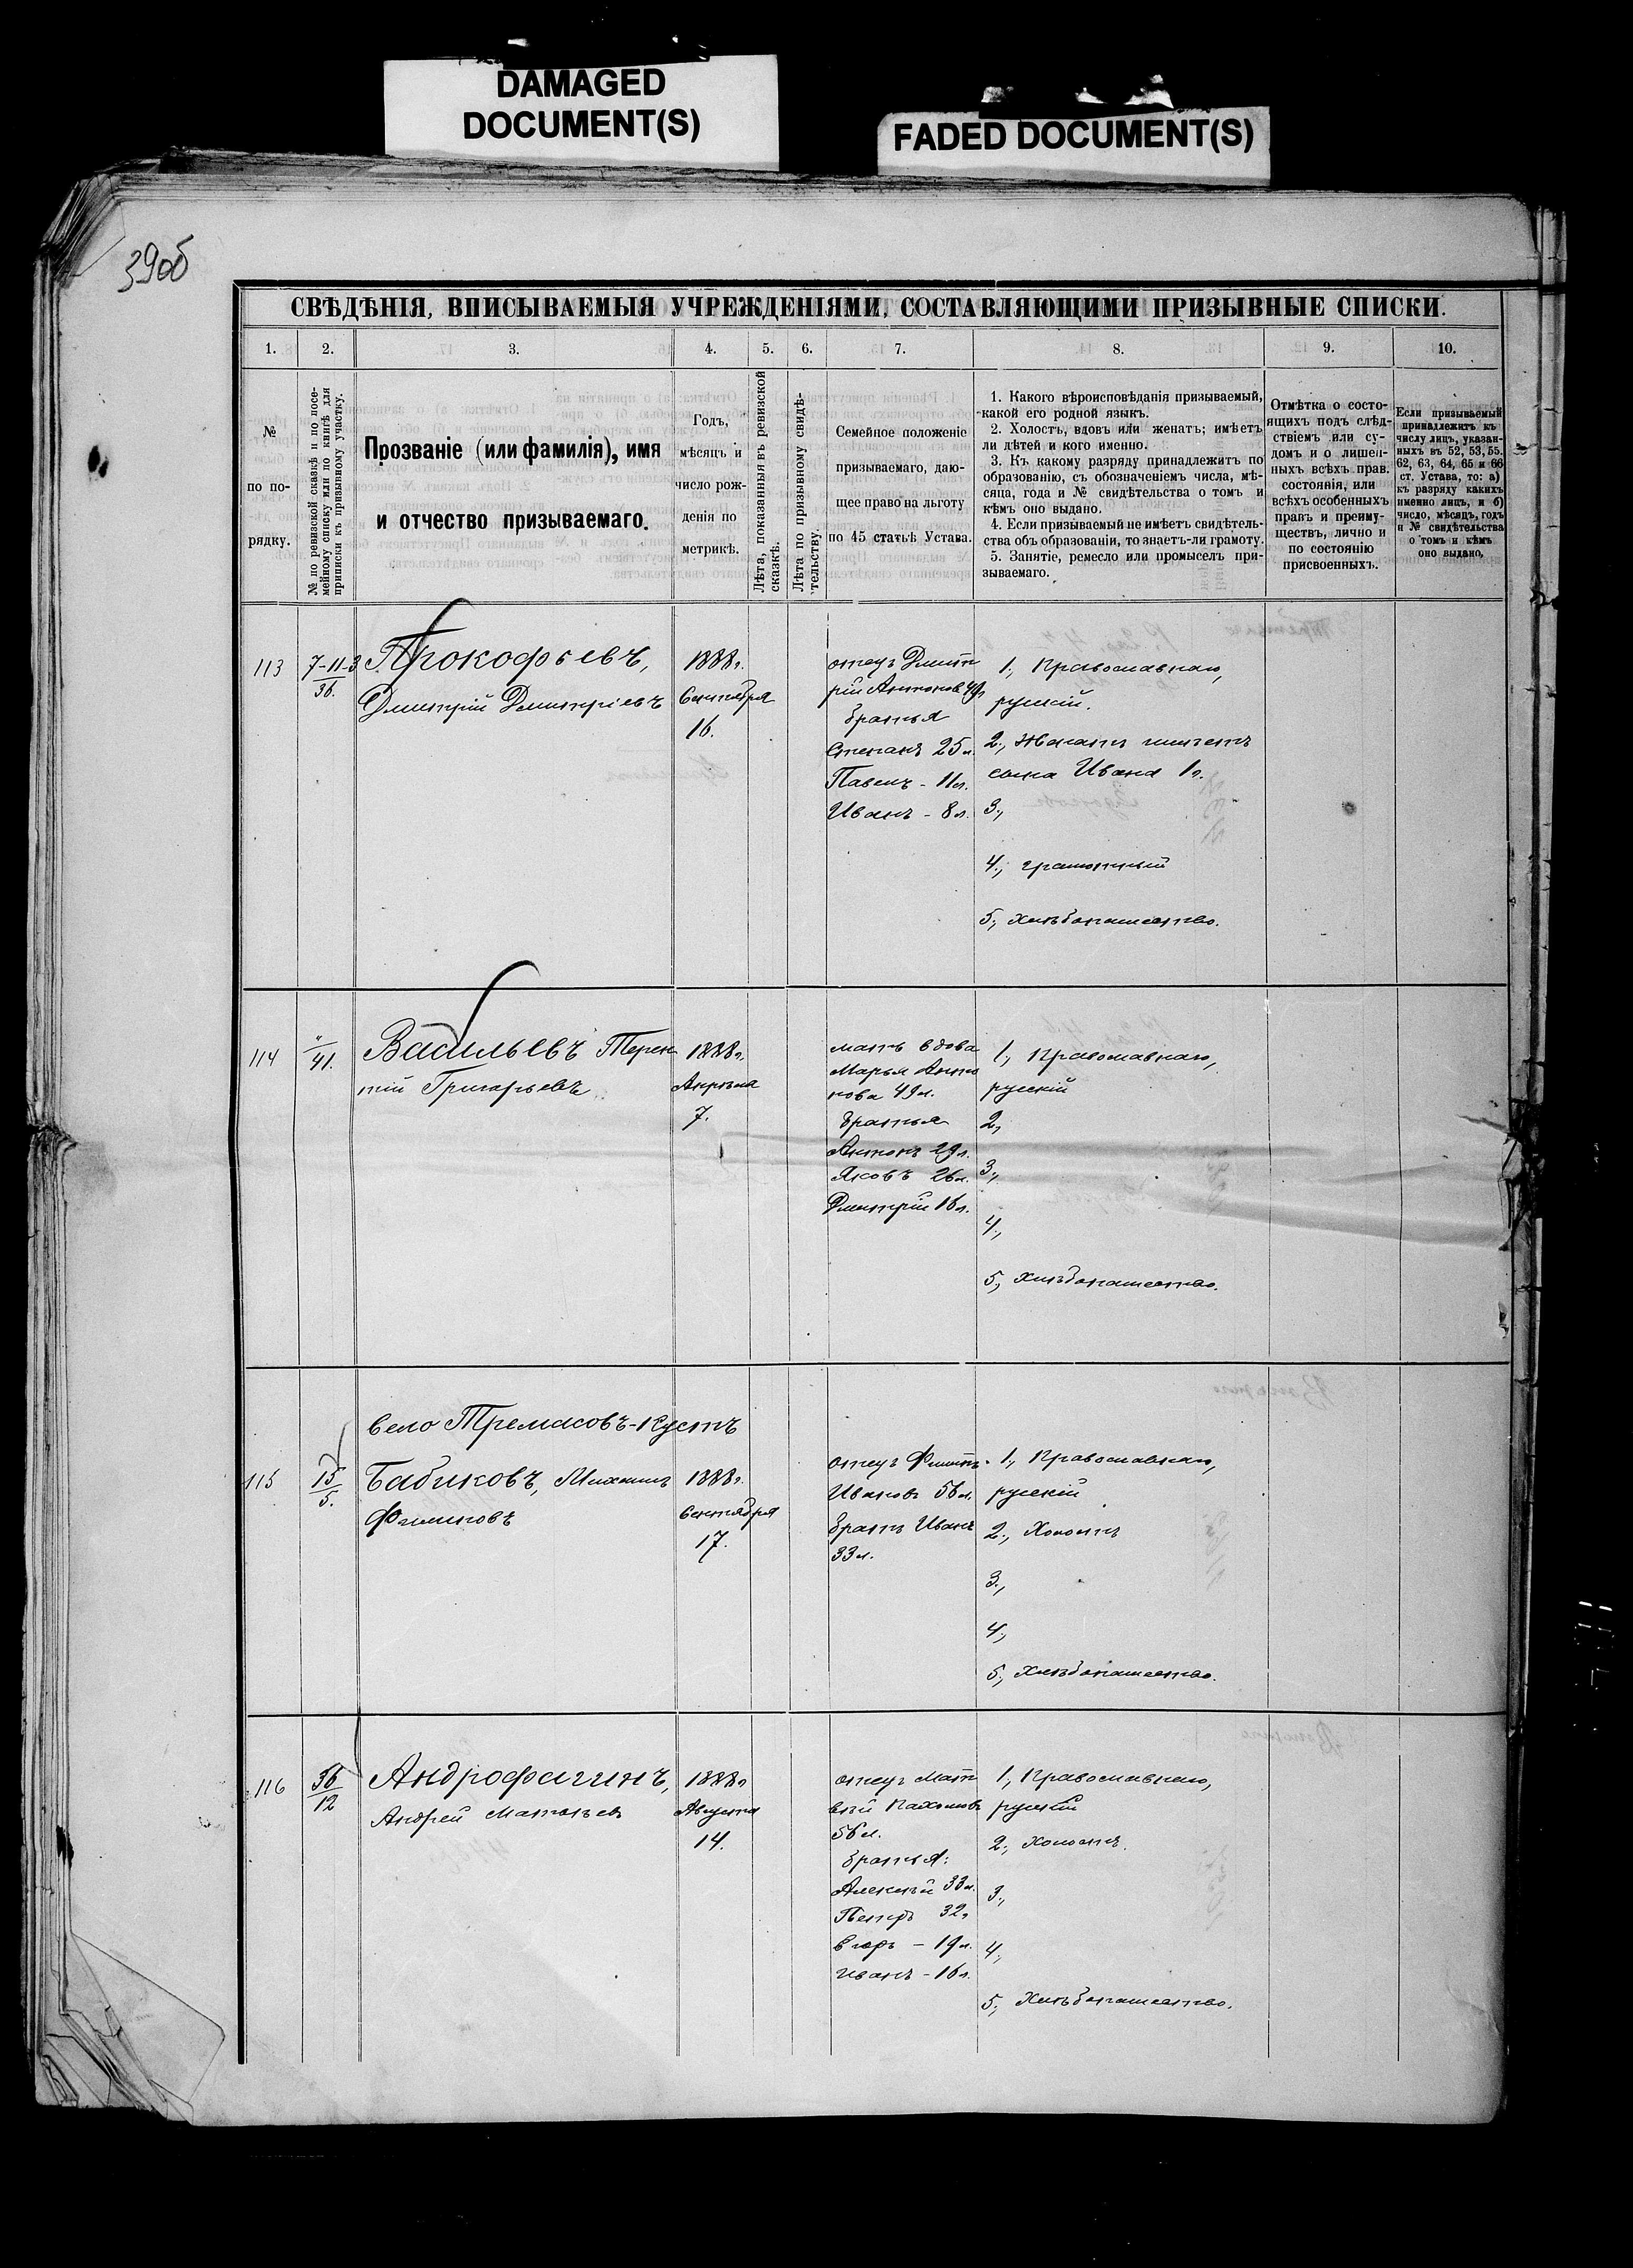 DAMAGED
DOCUMENT(S)
FADED DOCUMENT(S)
39об
СВѢДѢНІЯ, ВПИСЫВАЕМЫЯ УЧРЕЖДЕНІЯМИ, СОСТАВЛЯЮЩИМИ ПРИЗЫВНЫЕ СПИСКИ.
1. 2. 3. 4. 5. 6. 7. 8. 9. 10.
№
по по-
рядку.
№ по ревизской сказкѣ и по посе-
мейному списку или по книгѣ для
приписки къ призывному участку.
Прозваніе (или фамилія), имя
и отчество призываемаго.
Годъ,
мѣсяцъ и
число рож-
денія по
метрикѣ.
Лѣта, показанныя въ ревизской
сказкѣ.
Лѣта по призывному свидѣ-
тельству.
Семейное положеніе
призываемаго, даю-
щее право на льготу
по 45 статьѣ Устава.
1. Какого вѣроисповѣданія призываемый,
какой его родной языкъ.
2. Холостъ, вдовъ или женатъ; имѣетъ
ли дѣтей и кого именно.
3. Къ какому разряду принадлежитъ по
образованію, съ обозначеніемъ числа, мѣ-
сяца, года и № свидѣтельства о томъ и
кѣмъ оно выдано.
4. Если призываемый не имѣетъ свидѣтель-
ства объ образованіи, то знаетъ-ли грамоту.
5. Занятіе, ремесло или промыселъ при-
зываемаго.
Отмѣтка о состо-
ящихъ подъ слѣд-
ствіемъ или су-
домъ и о лишен-
ныхъ всѣхъ прав.
состоянія, или
всѣхъ особенныхъ
правъ и преиму-
ществъ, лично и
по состоянію
присвоенныхъ.
Если призываемый
принадлежитъ къ
числу лицъ, указан-
ныхъ въ 52, 53, 55.
62, 63, 64, 65 и 66
ст. Устава, то: а)
къ разряду какихъ
именно лицъ, и б)
число, мѣсяцъ, годъ
и № свидѣтельства
о томъ и кѣмъ
оно выдано.
113
7-11-3
36.
Прокофьевъ,
Дмитрій Дмитріевъ
1888г.
Сентября
16.
отецъ Дмит
рій Антонов 49л
братья
Степанъ 25л.
Павелъ - 11л.
Иванъ - 8л.
1., Православнаго,
русскій.
2., Женатъ имѣетъ
сына Ивана 1г.
3.,
4., грамотный
5., хлѣбопашество.
114
"
41.
Васильевъ Терен
тій Григорьевъ
1888г.
Апрѣля
7.
мать вдова
Марья Анто
нова 49л.
братья
Антонъ 29л.
Яковъ 26л.
Дмитрій 16л.
1., Православнаго,
русскій
2.,
3.,
4.,
5., Хлѣбопашество.
Село Тремасовъ-Кустъ
115
15
5.
Бабиковъ, Михаилъ
Филиповъ
1888г.
Сентября
17.
отецъ Филипъ
Ивановъ 56л.
братъ Иванъ
33л.
1., Православнаго,
русскій
2., Холостъ
3.,
4.,
5., Хлѣбопашество.
116
36
12
Андрофагинъ,
Андрей Матвѣевъ
1888г
Августа
14.
отецъ Мат
вѣй Пахомовъ
56л.
братья:
Алексѣй 33л.
Петръ 32л
Егоръ - 19л.
Иванъ - 16л.
1., Православнаго,
русскій
2., Холостъ.
3.,
4.,
5., Хлѣбопашество.